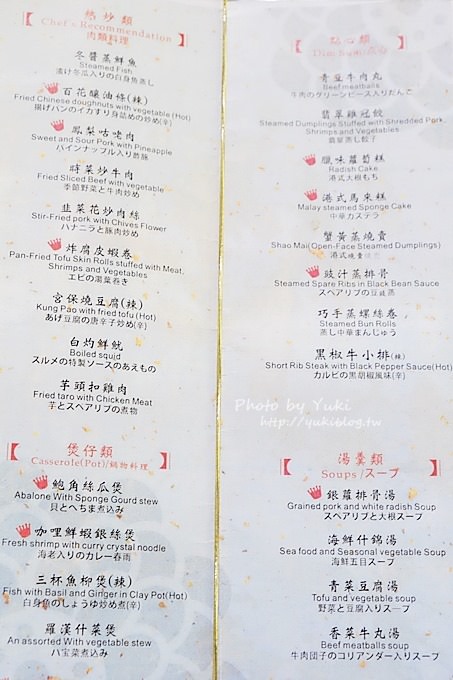 熱炒類
Chef's Recommendation
肉類料理
冬醬蒸鮮魚
Steamed Fish
漬け冬瓜入りの白身魚蒸し
百花釀油條(辣)
Fried Chinese doughnuts with vegetable (Hot)
揚げパンのイカすり身詰めの炒め(辛)
鳳梨咕咾肉
Sweet and Sour Pork with Pineapple
パインナップル入り酢豚
時菜炒牛肉
Fried Sliced Beef with vegetable
季節野菜と牛肉炒め
韭菜花炒肉絲
Stir-Fried pork with Chives Flower
ハナニラと豚肉炒め
炸腐皮蝦卷
Pan-Fried Tofu Skin Rolls stuffed with Meat,
Shrimps and Vegetables
エビの湯葉巻き
宮保燒豆腐(辣)
Kung Pao with fried tofu (Hot)
あげ豆腐の唐辛子炒め(辛)
白灼鮮魷
Boiled squid
スルメの特製ソースのあえもの
芋頭扣雞肉
Fried taro with Chicken Meat
芋とスペアリブの煮物
煲仔類
Casserole(Pot)/鍋物料理
鮑角絲瓜煲
Abalone With Sponge Gourd stew
貝とへちま煮込み
咖哩鮮蝦銀絲煲
Fresh shrimp with curry crystal noodle
海老入りのカレー春雨
三杯魚柳煲(辣)
Fish with Basil and Ginger in Clay Pot(Hot)
白身魚のしょうゆ炒め煮(辛)
羅漢什菜煲
An assorted With vegetable stew
八宝菜煮込み
點心類
Dim Sum/点心
青豆牛肉丸
Beef meatballs
牛肉のグリーンピース入りだんご
翡翠雞冠餃
Steamed Dumplings Stuffed with Shredded Pork,
Shrimps and Vegetables
翡翠蒸し餃子
臘味蘿蔔糕
Radish Cake
港式大根もち
港式馬來糕
Malay steamed Sponge Cake
中華カステラ
蟹黃蒸燒賣
Shao Mai(Open-Face Steamed Dumplings)
港式燒賣
豉汁蒸排骨
Steamed Spare Ribs in Black Bean Sauce
スペアリブの豆豉蒸
巧手蒸螺絲卷
Steamed Bun Rolls
蒸し中華まんじゅう
黑椒牛小排(辣)
Short Rib Steak with Black Pepper Sauce(Hot)
カルビの黒胡椒風味(辛)
Photo by Yuki
http://yukiblog.tw
湯羹類
Soups/スープ
銀蘿排骨湯
Grained pork and white radish Soup
スペアリブと大根スープ
海鮮什錦湯
Sea food and Seasonal vegetable Soup
海鮮五目スープ
青菜豆腐湯
Tofu and vegetable soup
野菜と豆腐入りスープ
香菜牛丸湯
Beef meatballs soup
牛肉団子のコリアンダー入りスープ